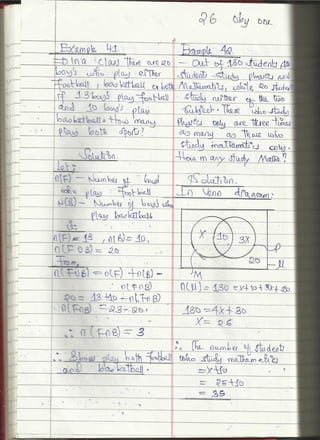 26 Oby one
Example 41
⇒ In a class There are 20
boys who play either
football, basketball or both
If 13 boys play football
and 10 boys play
basketball. How many
play both sports?
Solution.
Let:
n(F) - Number of boys
who play football
n(B) - Number of boys who
play basketball
n(F) = 13, n(B) = 10,
n(F∪B) = 20
From,
n(F∪B) = n(F) + n(B) -
n(F∩B)
20 = 13+10 - n(F∩B)
n(F∩B) = 23-20.
∴ n(F∩B) = 3
∴ 3 boys play both football
and basketball.
Example 42
Out of 130 students, 10
students study physics and
Mathematics, while 20 students
study neither of the two
subject. Those who study
Physics only are three times
as many as Those who
study mathematics only.
How many study Maths?
Solution.
In Venn diagram:
X 10 3X
P
20
μ
M
n(μ) = 130 = x+10+3x+20
130 = 4x+30
x = 26
∴ The number of student
who study mathematics
= x+10
= 25+10
= 35